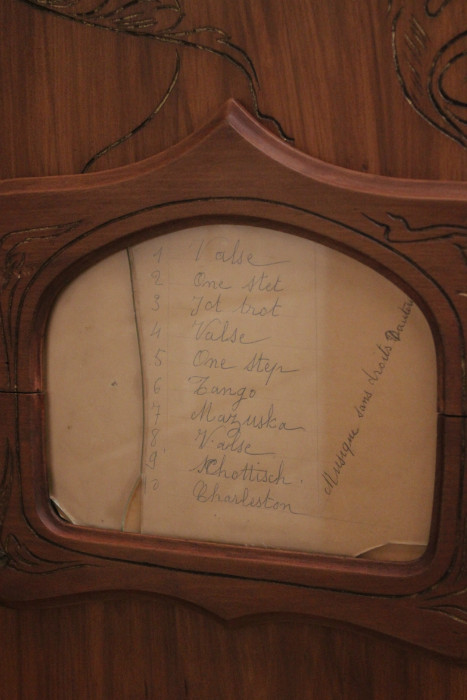 1 Valse
2 One stet
3 Ict trot
4 Valse
5 One step
6 Tango
7 Mazuska
8 Valse
9 Schottisch.
10 Charleston
Musique sans droits D'auteur